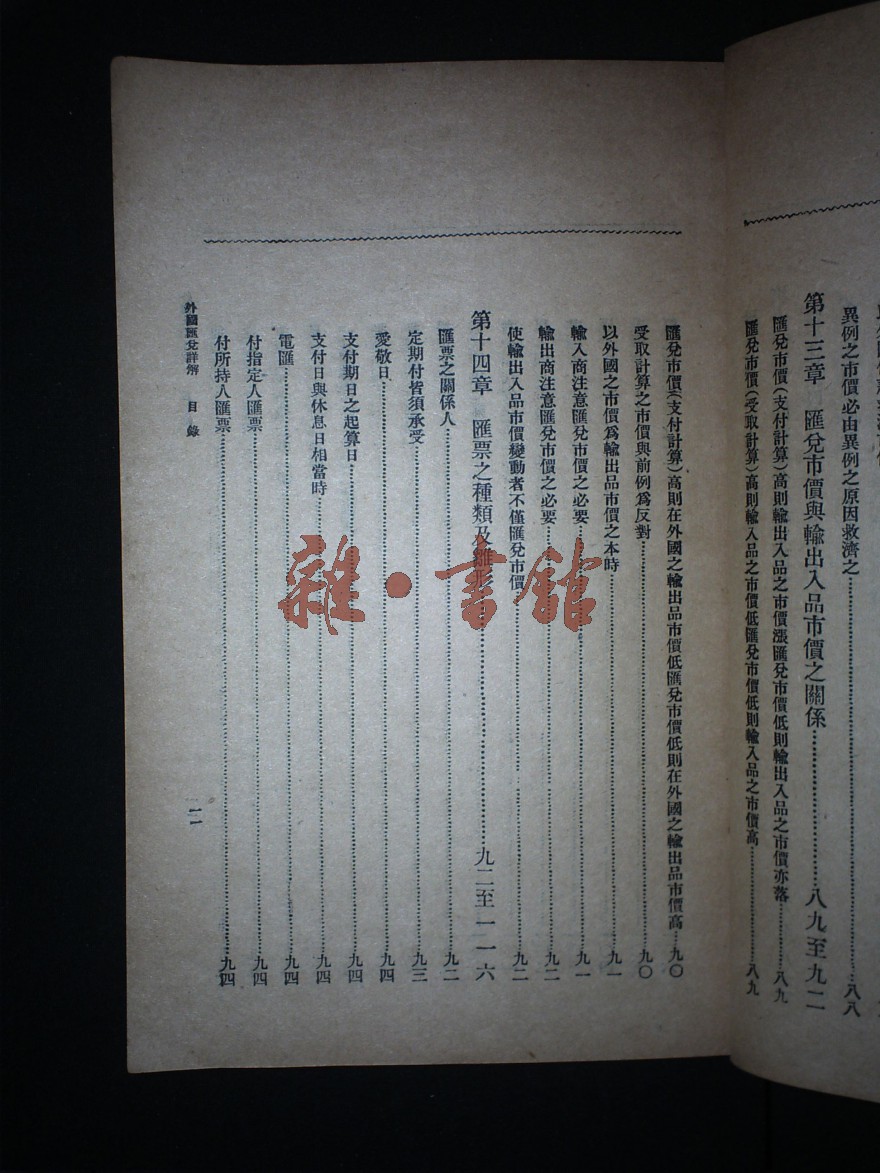 異例之市價必由異例之原因救濟之……八八
第十三章 匯兌市價與輸出入品市價之關係……八九至九二
匯兌市價(支付計算)高則輸出入品之市價漲匯兌市價低則輸出入品之市價亦落……八九
匯兌市價(受取計算)高則輸入品之市價低匯兌市價低則輸入品之市價高……八九
匯兌市價(支付計算)高則在外國之輸出品市價低匯兌市價低則在外國之輸出品市價高……九〇
受取計算之市價與前例爲反對……九〇
以外國之市價爲輸出品市價之本時……九一
輸入商注意匯兌市價之必要……九一
輸出商注意匯兌市價之必要……九二
使輸出入品市價變動者不僅匯兌市價……九二
第十四章 匯票之種類及雛形……九二至一一六
匯票之關係人……九二
定期付皆須承受……九三
愛敬日……九四
支付期日之起算日……九四
支付日與休息日相當時……九四
電匯……九四
付指定人匯票……九四
付所持人匯票……九四
外國匯兌詳解 目錄
一一
雜·書館